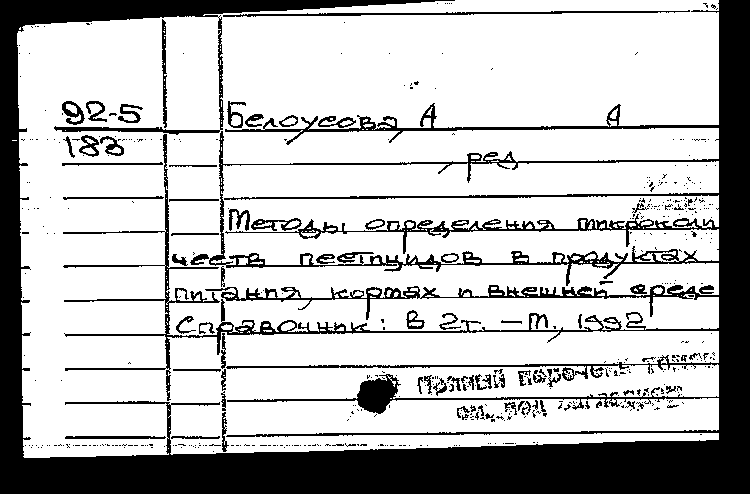 92-5 Белоусова, А А
183
, ред.
Методы определения микроколи
честв пестицидов в продуктах
питания, кормах и внешней среде
Справочник: В 2т. – М., 1992
Полный перечень томов
см. под заглавием